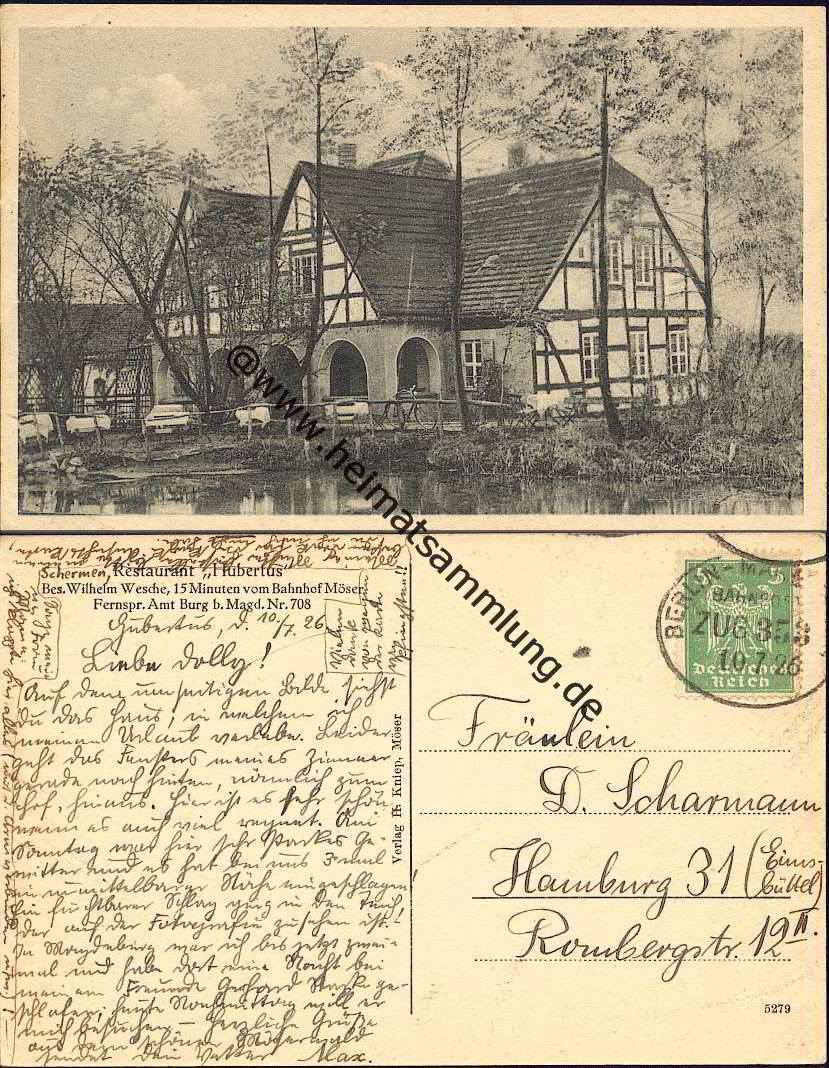 @www.heimatsammlung.de
Schermen, Restaurant „Hubertus“
Bes. Wilhelm Wesche, 15 Minuten vom Bahnhof Möser
Fernspr. Amt Burg b. Magd. Nr. 708
Hubertus, d. 10/7. 26
Vielen
Dank
Pfingsten!!
Liebe Dolly!
Auf dem umseitigen Bilde siehst
Du das Haus, in welchem ich
meinen Urlaub verlebe. Leider
geht das Fenster meines Zimmer
gerade nach hinten, nämlich zum
Hof, hinaus. Hier ist es sehr schön
wenn es auch viel regnet. Am
Sonntag war hier sehr starkes Ge-
witter und es hat bei uns 3 mal
in unmittelbarer Nähe eingeschlagen!
Ein furchtbarer Schlag ging in den Teich,
der auf der Fotografie zu sehen ist!
In Magdeburg war ich bis jetzt zwei-
mal und habe dort eine Nacht bei
meinem Freunde Gerhard ge-
schlafen; heute Nachmittag will er
mich besuchen – Herzliche Grüße
aus dem schönen Möserwald
sendet Dein Vetter Max.
Verlag H. Kniep, Möser
BERLIN
BAHNPOST
ZUG 353
10.7.26
5 5
Deutsches
Reich
Fräulein
D. Scharmann
Hamburg 31 (Eims-
büttel)
Rombergstr. 12 II.
5279